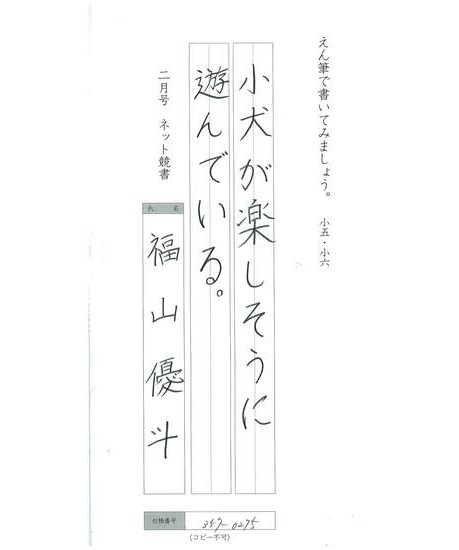 えん筆で書いてみましょう。　小五・小六
小犬が楽しそうに
遊んでいる。
二月号　ネット競書
氏名
福山優斗
台帳番号
(コピー不可)